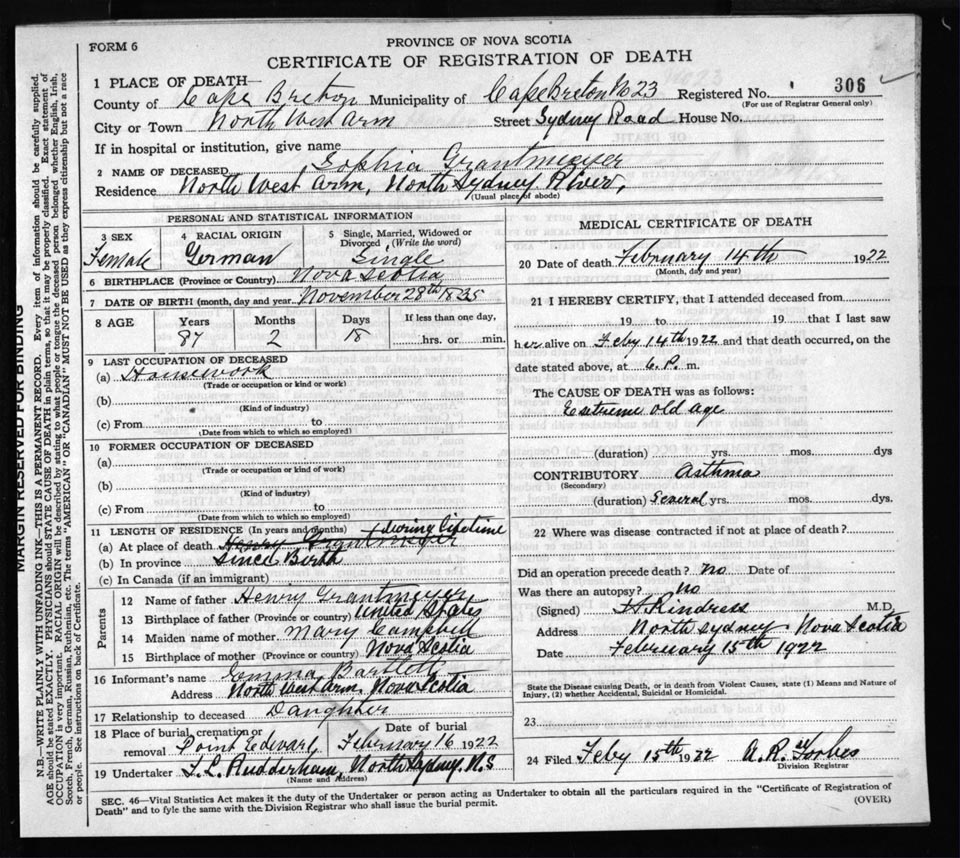 FORM 6
PROVINCE OF NOVA SCOTIA
CERTIFICATE OF REGISTRATION OF DEATH
1 PLACE OF DEATH—
County of Cape Breton Municipality of Cape Breton No 23 Registered No. 306
(For use of Registrar General only)
City or Town North West Arm Street Sydney Road House No.
If in hospital or institution, give name
2 NAME OF DECEASED Sophia Grantmeyer
Residence North West Arm, North Sydney River,
(Usual place of abode)
PERSONAL AND STATISTICAL INFORMATION
3 SEX Female
4 RACIAL ORIGIN German
5 Single, Married, Widowed or Divorced, (Write the word) Single
6 BIRTHPLACE (Province or Country) Nova Scotia
7 DATE OF BIRTH (month, day and year) November 28th 1835
8 AGE Years Months Days If less than one day,
87 2 18 hrs. or min.
9 LAST OCCUPATION OF DECEASED
(a) Housework
(Trade or occupation or kind or work)
(b)
(Kind of industry)
(c) From to
(Date from which to which so employed)
10 FORMER OCCUPATION OF DECEASED
(a)
(Trade or occupation or kind of work)
(b)
(Kind of industry)
(c) From to
(Date from which to which so employed)
11 LENGTH OF RESIDENCE (In years and months) during lifetime
(a) At place of death Henry Grantmeyer
(b) In province Since Birth
(c) In Canada (if an immigrant)
Parents
12 Name of father Henry Grantmeyer
13 Birthplace of father (Province or country) United States
14 Maiden name of mother Mary Campbell
15 Birthplace of mother (Province or country) Nova Scotia
16 Informant's name Emma Bartlett
Address North West Arm, Nova Scotia
17 Relationship to deceased Daughter
18 Place of burial, cremation or removal Point Edward
Date of burial February 16 1922
19 Undertaker T.L. Rudderham, North Sydney. N.S
(Name and Address)
MEDICAL CERTIFICATE OF DEATH
20 Date of death February 14th 1922
(Month, day and year)
21 I HEREBY CERTIFY, that I attended deceased from
19 to 19 that I last saw
her alive on Feby 14th 1922 and that death occurred, on the
date stated above, at 6. P. m.
The CAUSE OF DEATH was as follows:
Extreme old age
(duration) yrs. mos. dys
CONTRIBUTORY Asthma
(Secondary)
(duration) Several yrs. mos. dys.
22 Where was disease contracted if not at place of death?
Did an operation precede death? No Date of
Was there an autopsy? No
(Signed) Rindress M.D.
Address North Sydney. Nova Scotia
Date February 15th 1922
State the Disease causing Death, or in death from Violent Causes, state (1) Means and Nature of
Injury, (2) whether Accidental, Suicidal or Homicidal.
23
24 Filed Feby 15th 1922 A.R. Forbes
Division Registrar
SEC. 46—Vital Statistics Act makes it the duty of the Undertaker or person acting as Undertaker to obtain all the particulars required in the "Certificate of Registration of
Death" and to fyle the same with the Division Registrar who shall issue the burial permit.
(OVER)
MARGIN RESERVED FOR BINDING
N.B.—WRITE PLAINLY, WITH UNFADING INK—THIS IS A PERMANENT RECORD. Every item of information should be carefully supplied.
AGE should be stated EXACTLY. PHYSICIANS should STATE CAUSE OF DEATH in plain terms, so that it may be properly classified. Exact statement of
OCCUPATION is very important. RACIAL ORIGIN will be described by stating to what people or tongue the deceased person belonged whether English, Irish,
Scotch, French, German, Russian, Ruthenian, etc. The terms "AMERICAN" or "CANADIAN" MUST NOT BE USED as they express citizenship but not a race
or people. See instructions on back of Certificate.